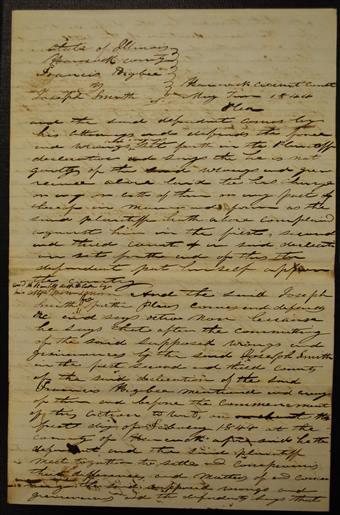 State of Illinois
Hancock county
Francis Higbee
vs
Joseph Smith
Hancock Circuit Court
May Term 1844
Plea
and the said defendant comes by
his attorneys and defends the
and wrongs set forth in the Plaintiff
declaration and says the he is not
guilty of the said wrongs and grie
vances above laid to his charge
in manner and form as the
said plaintiff hath above complained
against him in the first, second
and third count of his said declaration
defendant put himself upon
the County
And the said Joseph
Smith further plea comes and defends
&c and says actio non because
he says that after the committing
of the said supposed wrongs and
grievances by the said Joseph Smith
in the first second and third counts
of the said declaration of the said
Francis Higbee mentioned and
of them and before the commencement
of this action to wit,
first day of February 1844 at the
county of Hancock aforesaid he the
defendant and the said plaintiff
met together to settle and compromise
their differences, and matters of
the said supposed wrongs and
grievances and the defendant says that